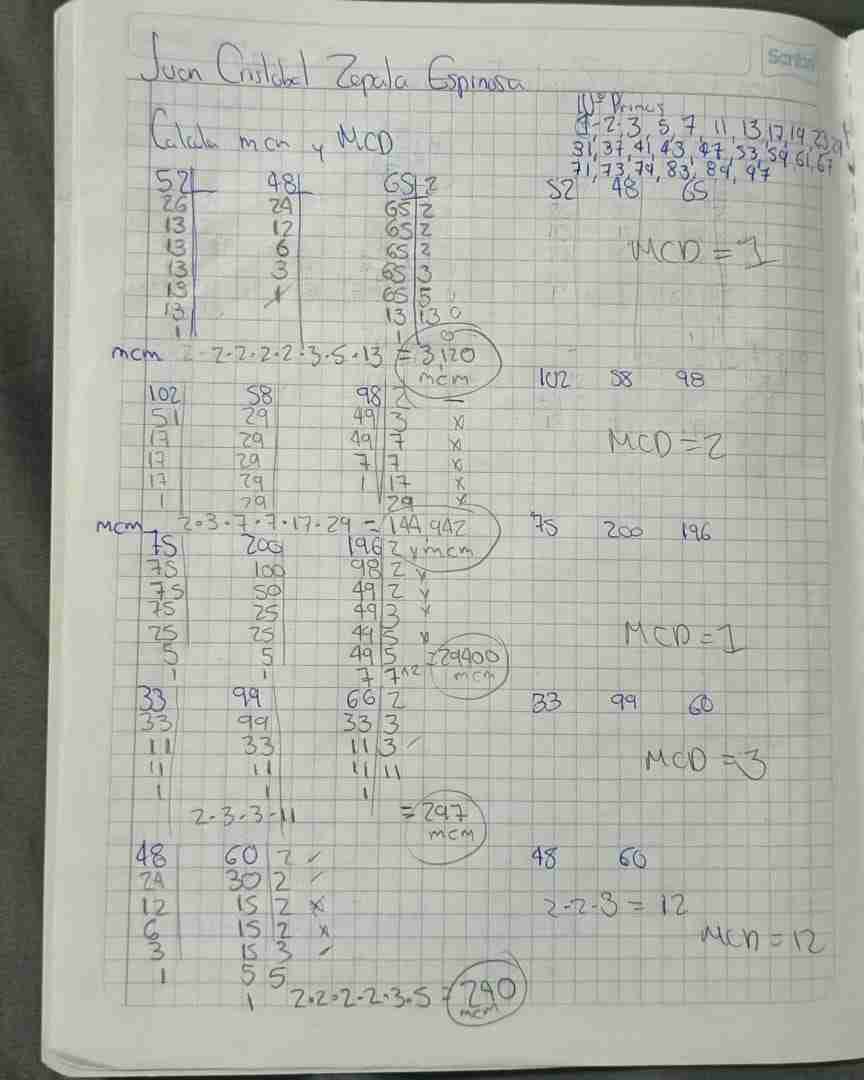 Juan Cristobal Zapala Espinosa
Scribe
Nº Primos
1-2-3, 5, 7, 11, 13, 17, 19, 23, 29
31, 37, 41, 43, 47, 53, 59, 61, 67
71, 73, 79, 83, 89, 97
Calcula mcm y MCD
52 48 65 2
26 24 65 2
13 12 65 2
13 6 65 2
13 3 65 3
13 1 65 5
13 13 13
1 1
mcm 2·2·2·2·3·5·13 = 3,120
mcm
52 48 65
MCD = 1
102 58 98 2
51 29 49 3 x
17 29 49 7 x
17 29 7 7 x
17 29 1 17 x
1 29 29 x
mcm 2·3·7·7·17·29 = 144,942
mcm
102 58 98
MCD = 2
75 200 196 2
75 100 98 2
75 50 49 2
75 25 49 3
25 25 49 5 x
5 5 49 5 = 29400
1 1 7 7^2 mcm
75 200 196
MCD = 1
33 99 66 2
33 99 33 3
11 33 11 3
11 11 11 11
1 1 1
2·3·3·11 = 297
mcm
33 99 60
MCD = 3
48 60 2
24 30 2
12 15 2 x
6 15 2 x
3 15 3
1 5 5
1 2·2·2·2·3·5 = 240
mcm
48 60
2·2·3 = 12
MCD = 12